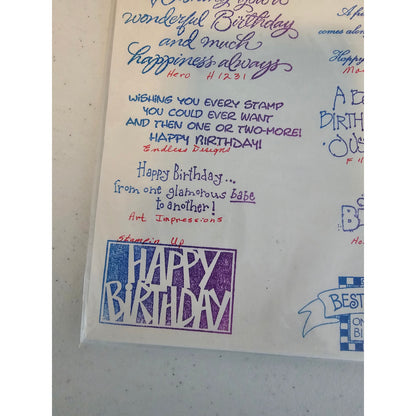 wonderful Birthday
and much
happiness always
Hero H 1231
WISHING YOU EVERY STAMP
YOU COULD EVER WANT
AND THEN ONE OR TWO-MORE!
HAPPY BIRTHDAY!
Endless Designs
Happy Birthday...
from one glamorous babe
to another!
Art Impressions
Stampin Up
HAPPY
BIRTHDAY
comes along
Happy
A B
BIRTH
BEST
ON
BI